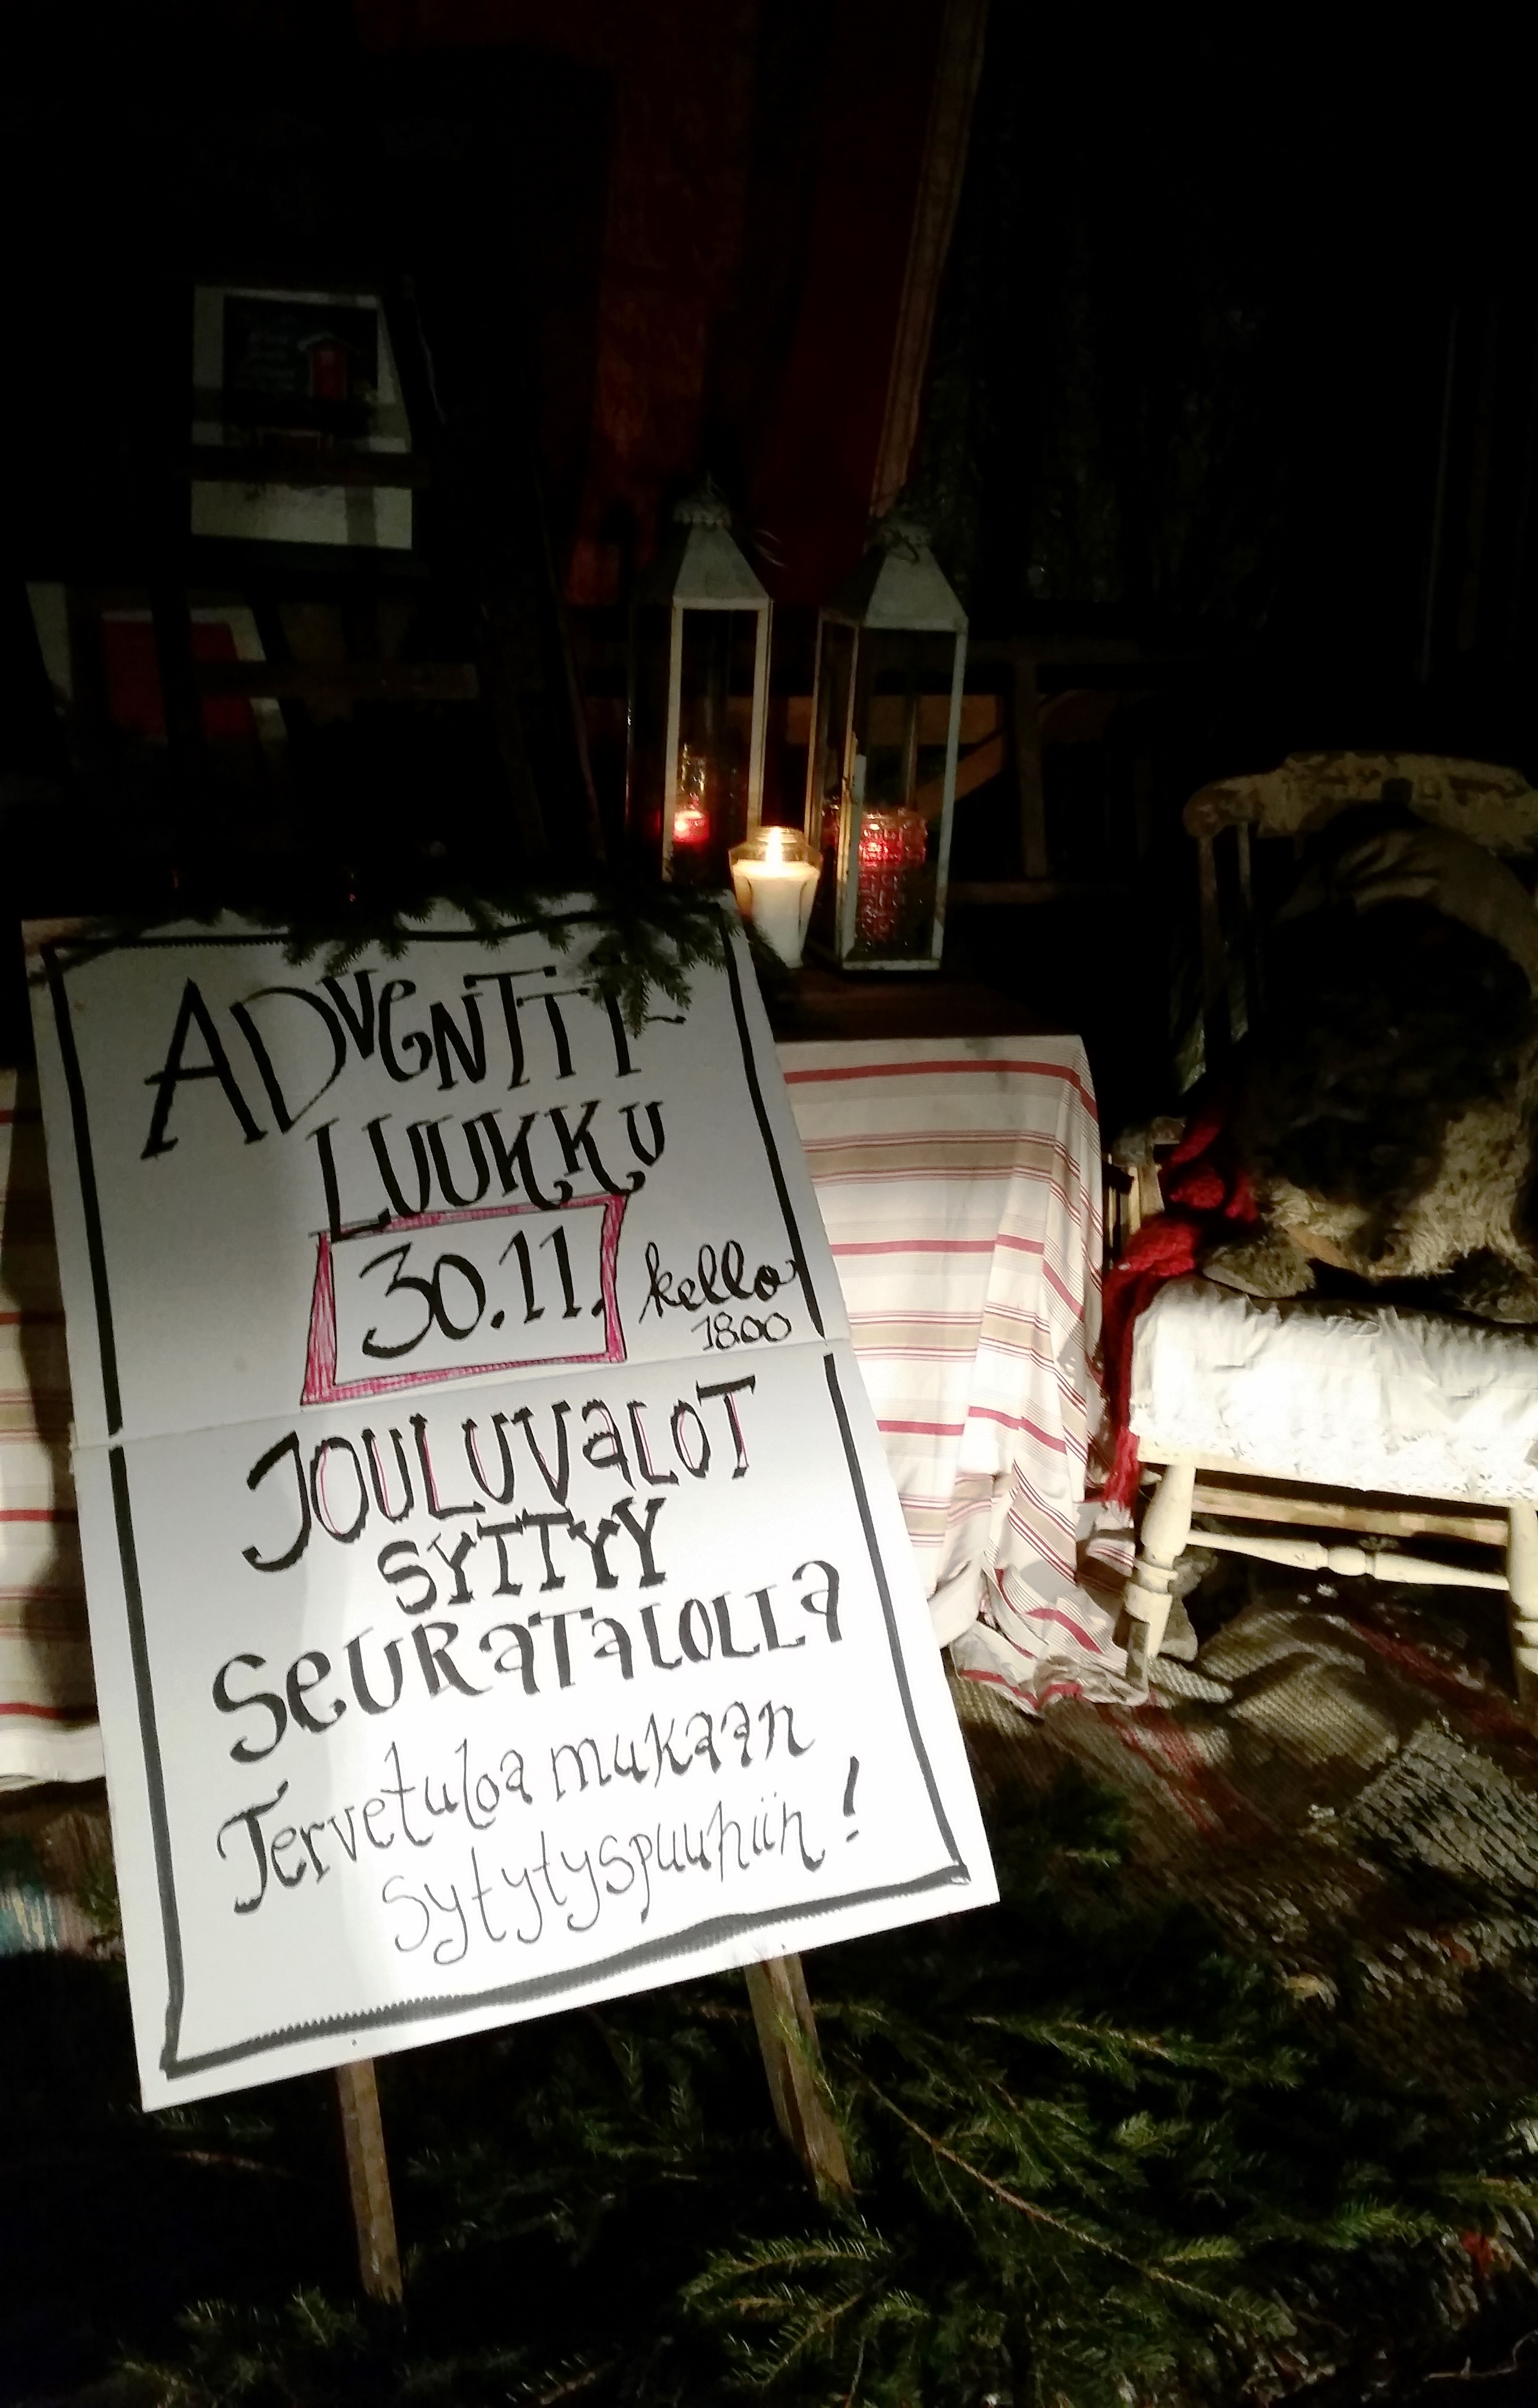 ADVENTTI-
LUUKKU
30.11. kello
18.00
JOULUVALOT
SYTTYY
SEURATALOLLA
Tervetuloa mukaan
sytytyspuuhiin!